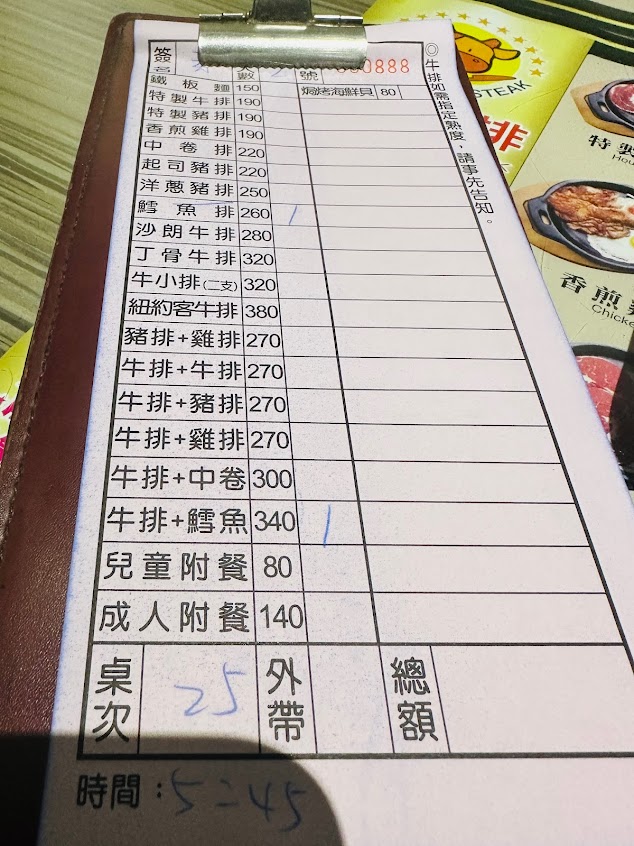 簽名 人數 號 000888
鐵板麵 150 焗烤海鮮貝 80
特製牛排 190
特製豬排 190
香煎雞排 190
中卷排 220
起司豬排 220
洋蔥豬排 250
鱈魚排 260 1
沙朗牛排 280
丁骨牛排 320
牛小排(二支) 320
紐約客牛排 380
豬排+雞排 270
牛排+牛排 270
牛排+豬排 270
牛排+雞排 270
牛排+中卷 300
牛排+鱈魚 340 1
兒童附餐 80
成人附餐 140
桌次 25 外帶 總額
時間：5:45
◎牛排如需指定熟度，請事先告知。
STEAK
排
特製
Hou
香煎
Chicke